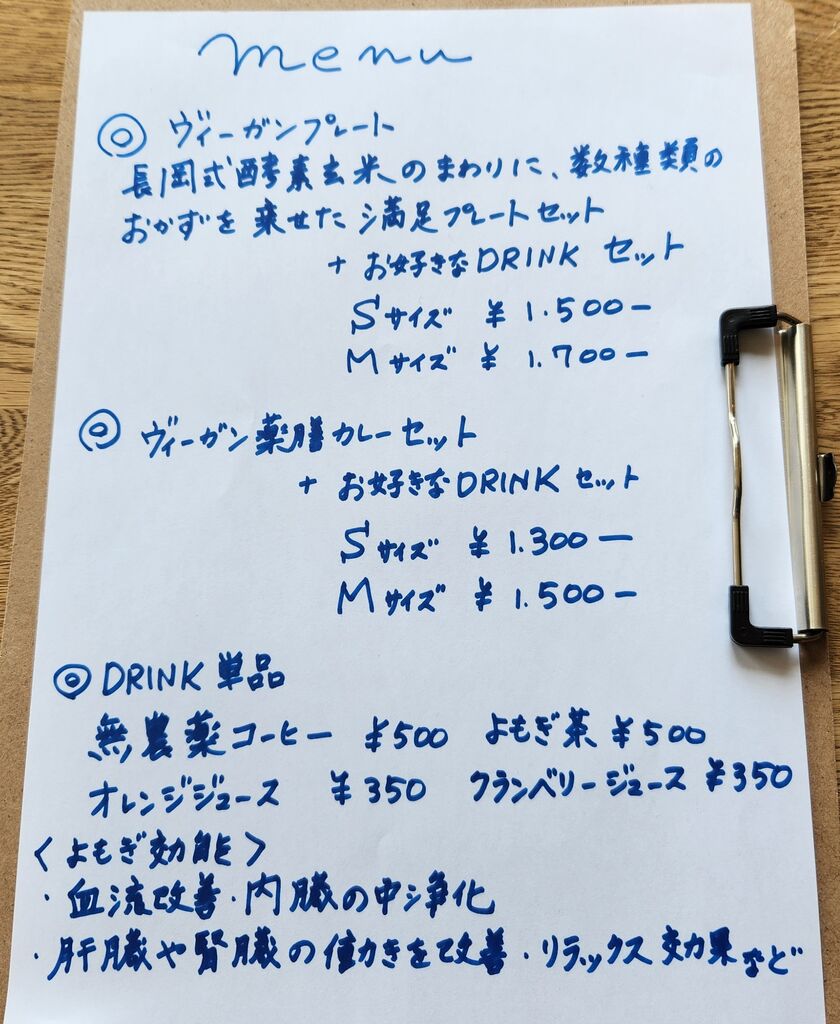 menu
◎ ヴィーガンプレート
長岡式酵素玄米のまわりに、数種類の
おかずを乗せた満足プレートセット
+ お好きなDRINK セット
Sサイズ ¥ 1.500ー
Mサイズ ¥ 1.700ー
◎ ヴィーガン薬膳カレーセット
+ お好きなDRINK セット
Sサイズ ¥ 1.300ー
Mサイズ ¥ 1.500ー
◎ DRINK 単品
無農薬コーヒー ¥500 よもぎ茶 ¥500
オレンジジュース ¥350 クランベリージュース ¥350
〈よもぎ効能〉
・血流改善・内臓の中浄化
・肝臓や腎臓の働きを改善・リラックス効果など